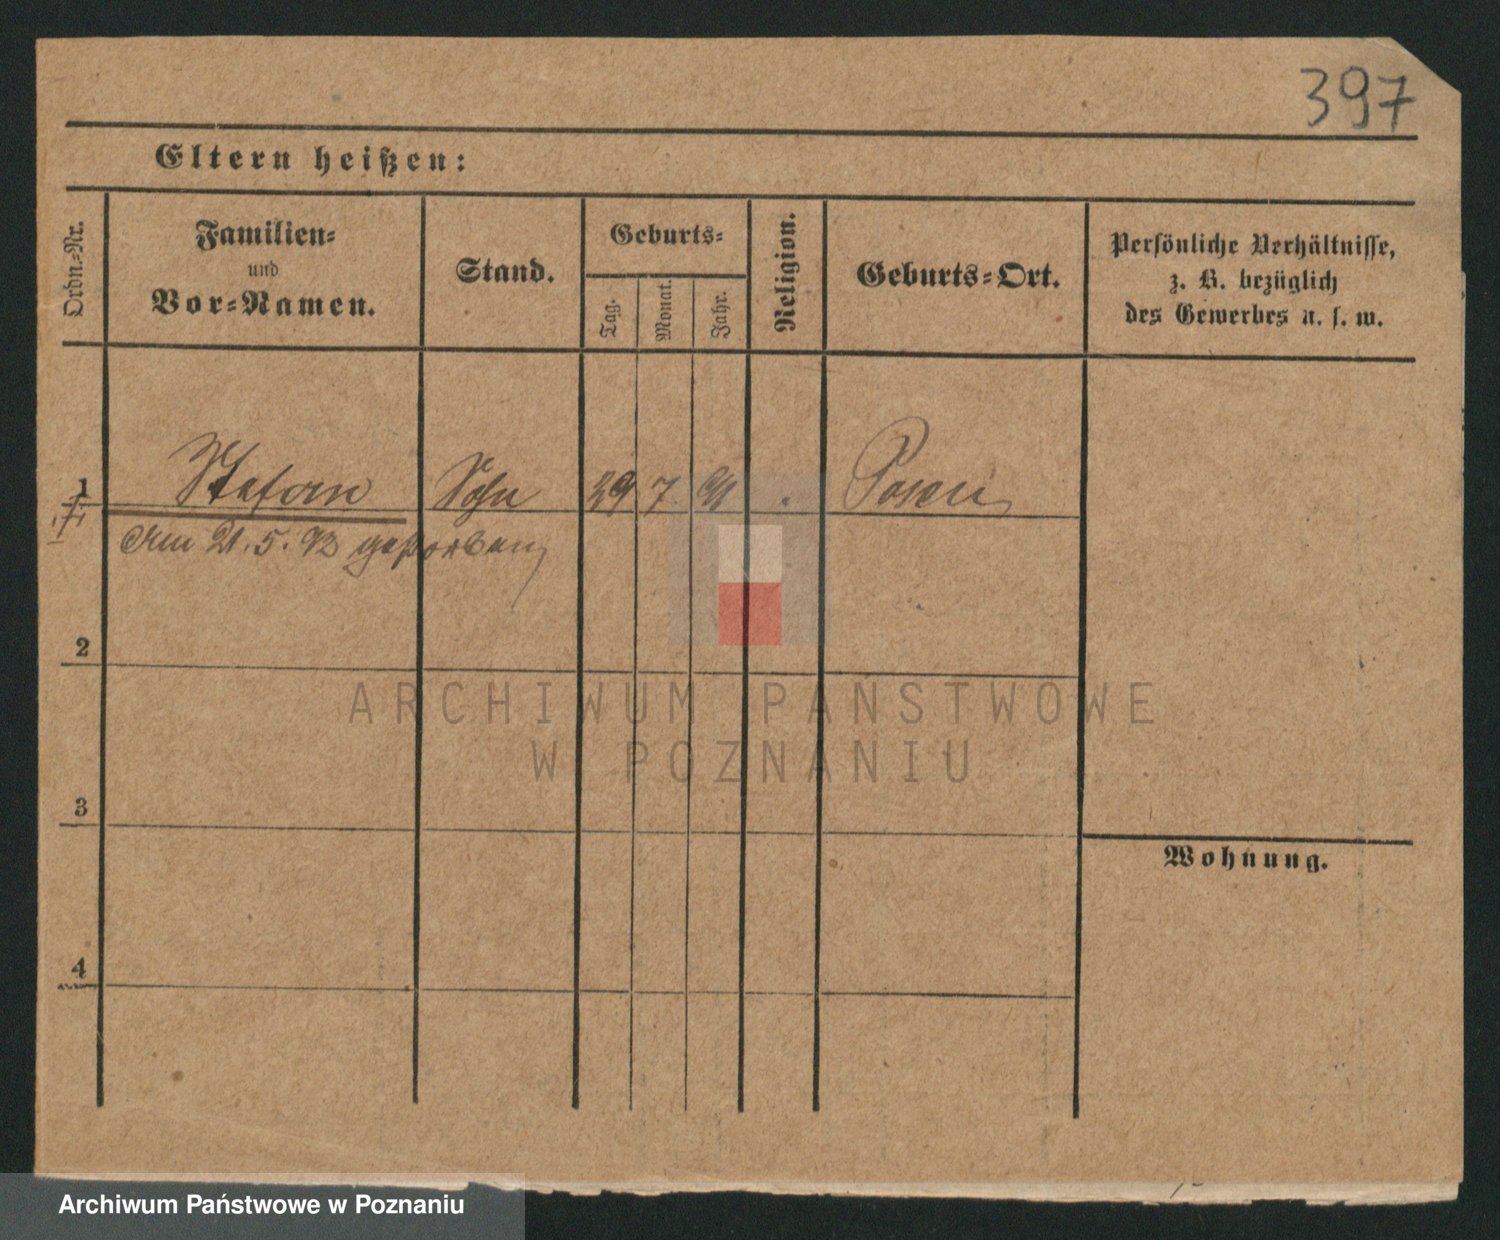 397
Eltern heißen:
Ordn.-Nr.
Familien-
und
Vor-Namen.
Stand.
Geburts-
Tag.
Monat.
Jahr.
Religion.
Geburts-Ort.
Persönliche Verhältnisse,
z. B. bezüglich
des Gewerbes u. s. w.
1 Stefan Sohn 29 7 91 Posen
Am 21. 5. 93 gestorben
2
ARCHIWUM PAŃSTWOWE
W POZNANIU
3
Wohnung.
4
Archiwum Państwowe w Poznaniu